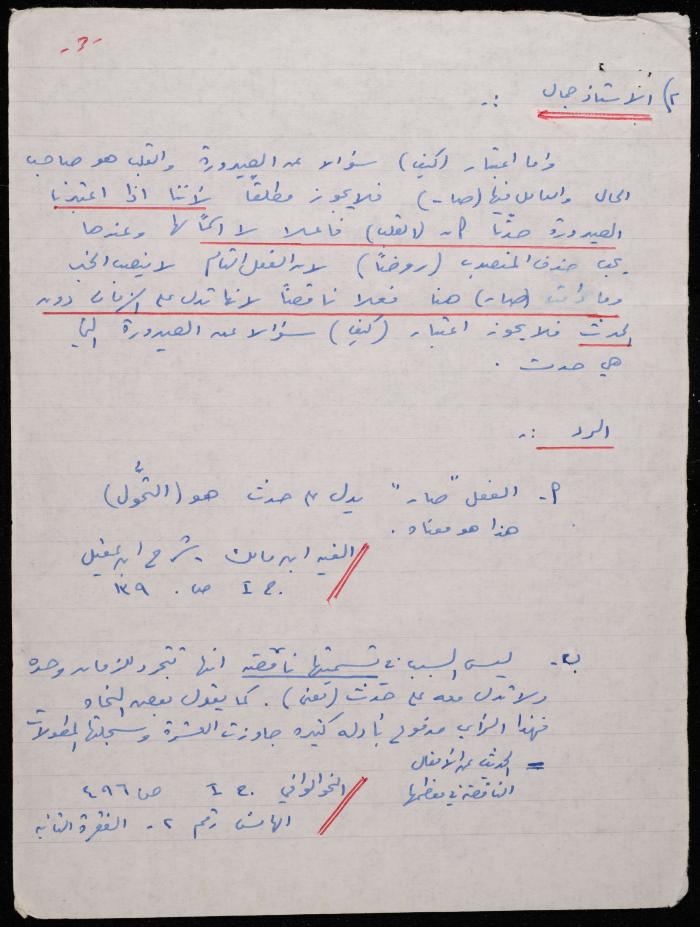 -٣-
٢) الاستاذ جمال :-
واما اعتبار (كيف) سؤالا عن الصيرورة والقلب هو صاحب
الحال والعامل فيها (صار) فلا يجوز مطلقاً لأننا اذا اعتبرنا
الصيرورة حدثاً كان (القلب) فاعلا لا اسماً لها وعندها
يجب حذف المنصوب (روضاً) لان الفعل التام لا ينصب الخبر
وما دامت (صار) هنا فعلا ناقصاً لانها تدل على الزمان دون
الحدث فلا يجوز اعتبار (كيف) سؤالا عن الصيرورة التي
هي حدث .
الرد :-
أ- الفعل "صار" يدل على حدث هو (التحوُّل)
هذا هو معناه .
الفيه ابن مالك - شرح ابن عقيل
ج. I ص. ١٣٩
ب- ليس السبب في تسميتها ناقصة انها تتجرد للزمان وحده
ولا تدل معه على حَدَث (معنى) . كما يقول بعض النحاه
فهذا الرأي مدفوع بأدله كثيره جاوزت العشرة وسجلتها المطولات
= الحدث عن الأفعال
الناقصة في معظمها
النحو الوافي ج. I ص ٤٩٦
الهامش رقم ٢- الفقرة الثانيه